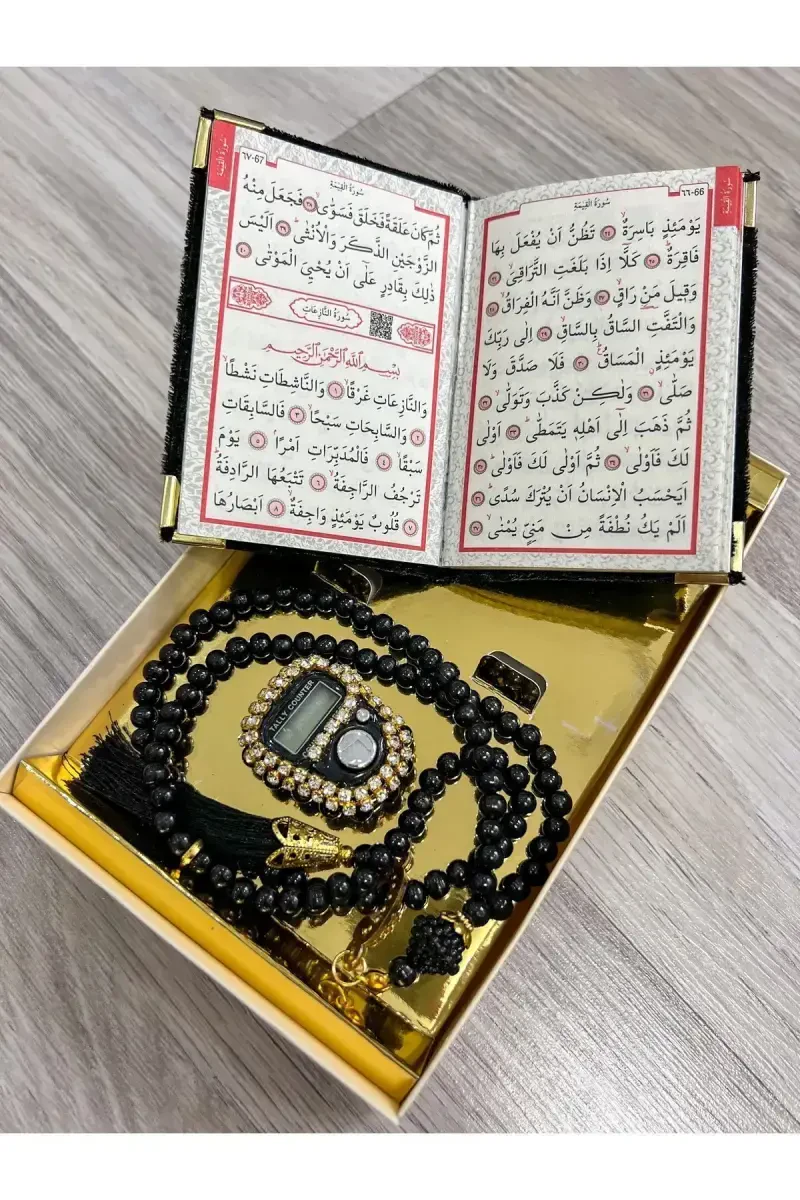 سُورَةُ الْقِيٰمَةِ
٦٦-66
سُورَةُ الْقِيٰمَةِ
يَوْمَئِذٍ بَاسِرَةٌۙ ٢٤ تَظُنُّ اَنْ يُفْعَلَ بِهَا
فَاقِرَةٌؕ ٢٥ كَلَّٓا اِذَا بَلَغَتِ التَّرَاقِيَۙ ٢٦
وَقِيلَ مَنْ رَاقٍۙ ٢٧ وَظَنَّ اَنَّهُ الْفِرَاقُۙ ٢٨
وَالْتَفَّتِ السَّاقُ بِالسَّاقِۙ ٢٩ اِلٰى رَبِّكَ
يَوْمَئِذٍ الْمَسَاقُؕ ٣٠ فَلَا صَدَّقَ وَلَا
صَلّٰىۙ ٣١ وَلٰكِنْ كَذَّبَ وَتَوَلّٰىۙ ٣٢
ثُمَّ ذَهَبَ اِلٰٓى اَهْلِهٖ يَتَمَطّٰىؕ ٣٣ اَوْلٰى
لَكَ فَاَوْلٰىۙ ٣٤ ثُمَّ اَوْلٰى لَكَ فَاَوْلٰىؕ ٣٥
اَيَحْسَبُ الْاِنْسَانُ اَنْ يُتْرَكَ سُدًىؕ ٣٦
اَلَمْ يَكُ نُطْفَةً مِنْ مَنِيٍّ يُمْنٰىۙ ٣٧
سُورَةُ الْقِيٰمَةِ
٦٧-67
سُورَةُ الْقِيٰمَةِ
ثُمَّ كَانَ عَلَقَةً فَخَلَقَ فَسَوّٰىۙ ٣٨ فَجَعَلَ مِنْهُ
الزَّوْجَيْنِ الذَّكَرَ وَالْاُنْثٰىؕ ٣٩ اَلَيْسَ
ذٰلِكَ بِقَادِرٍ عَلٰٓى اَنْ يُحْيِيَ الْمَوْتٰى ٤٠
سُورَةُ النَّازِعَاتِ
بِسْمِ اللّٰهِ الرَّحْمٰنِ الرَّحِيمِ
وَالنَّازِعَاتِ غَرْقًاۙ ١ وَالنَّاشِطَاتِ نَشْطًاۙ
٢ وَالسَّابِحَاتِ سَبْحًاۙ ٣ فَالسَّابِقَاتِ
سَبْقًاۙ ٤ فَالْمُدَبِّرَاتِ اَمْرًاۘ ٥ يَوْمَ
تَرْجُفُ الرَّاجِفَةُۙ ٦ تَتْبَعُهَا الرَّادِفَةُؕ
٧ قُلُوبٌ يَوْمَئِذٍ وَاجِفَةٌۙ ٨ اَبْصَارُهَا
TALLY COUNTER